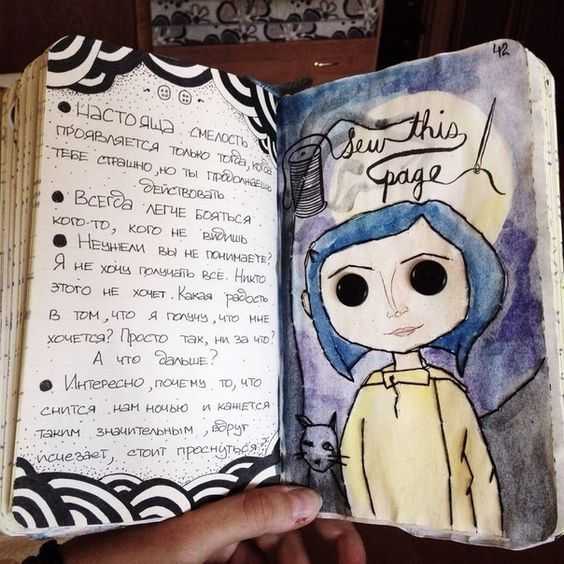 • Настояща смелость
проявляется только тогда, когда
тебе страшно, но ты продолжаешь
действовать
• Всегда легче бояться
кого-то, кого не видишь
• Неужели вы не понимаете?
Я не хочу получать всё. Никто
этого не хочет. Какая радость
в том, что я получу, что мне
хочется? Просто так, ни за что?
А что дальше?
• Интересно, почему то, что
снится нам ночью и кажется
таким значительным, вдруг
исчезает, стоит проснуться?
42
Sew this
page